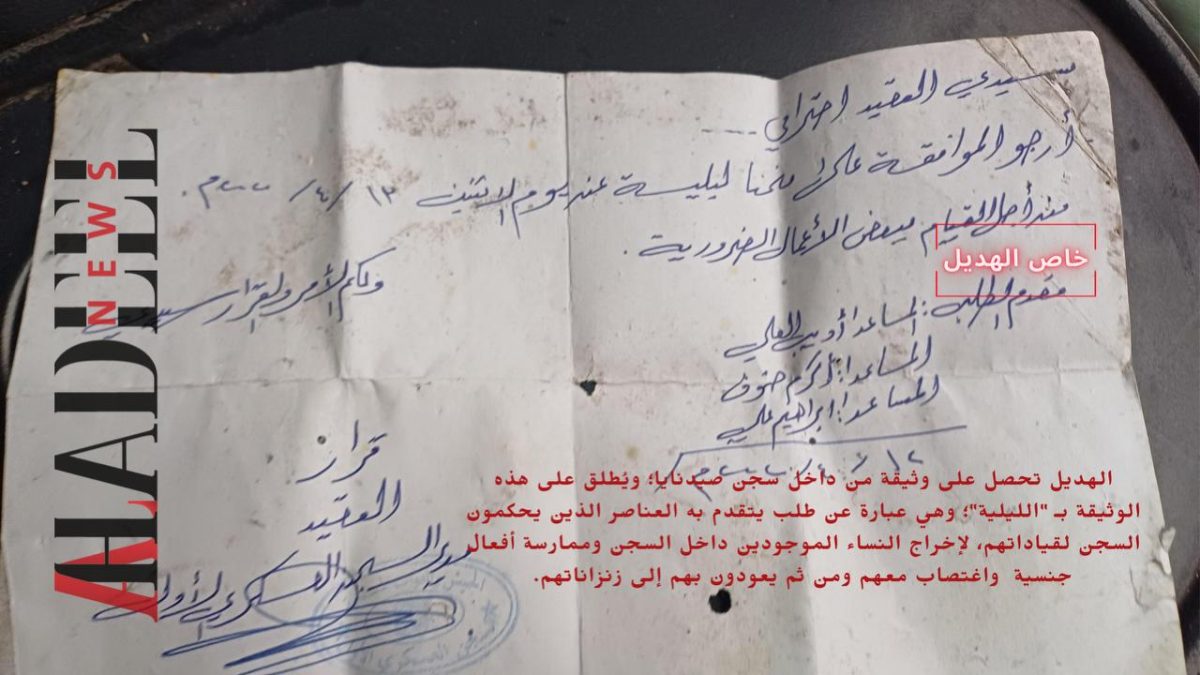 سيدي العقيد احترامي ....
أرجو الموافقة على منحنا ليلية عن يوم الاثنين ١٣ / ٤ / ٢٠٢٠م .
من أجل القيام ببعض الأعمال الضرورية .
ولكم الأمر والقرار سيدي
مقدم الطلب : المساعد أديب العلي
المساعد : أكرم
المساعد : ابراهيم علي
قرار
العقيد
مدير السجن العسكري الأول
ALADEEL
NEWS
خاص الهديل
الهديل تحصل على وثيقة من داخل سجن صيدنايا؛ ويُطلق على هذه
الوثيقة بـ "الليلية"؛ وهي عبارة عن طلب يتقدم به العناصر الذين يحكمون
السجن لقياداتهم، لإخراج النساء الموجودين داخل السجن وممارسة أفعال
جنسية واغتصاب معهم ومن ثم يعودون بهم إلى زنزاناتهم.